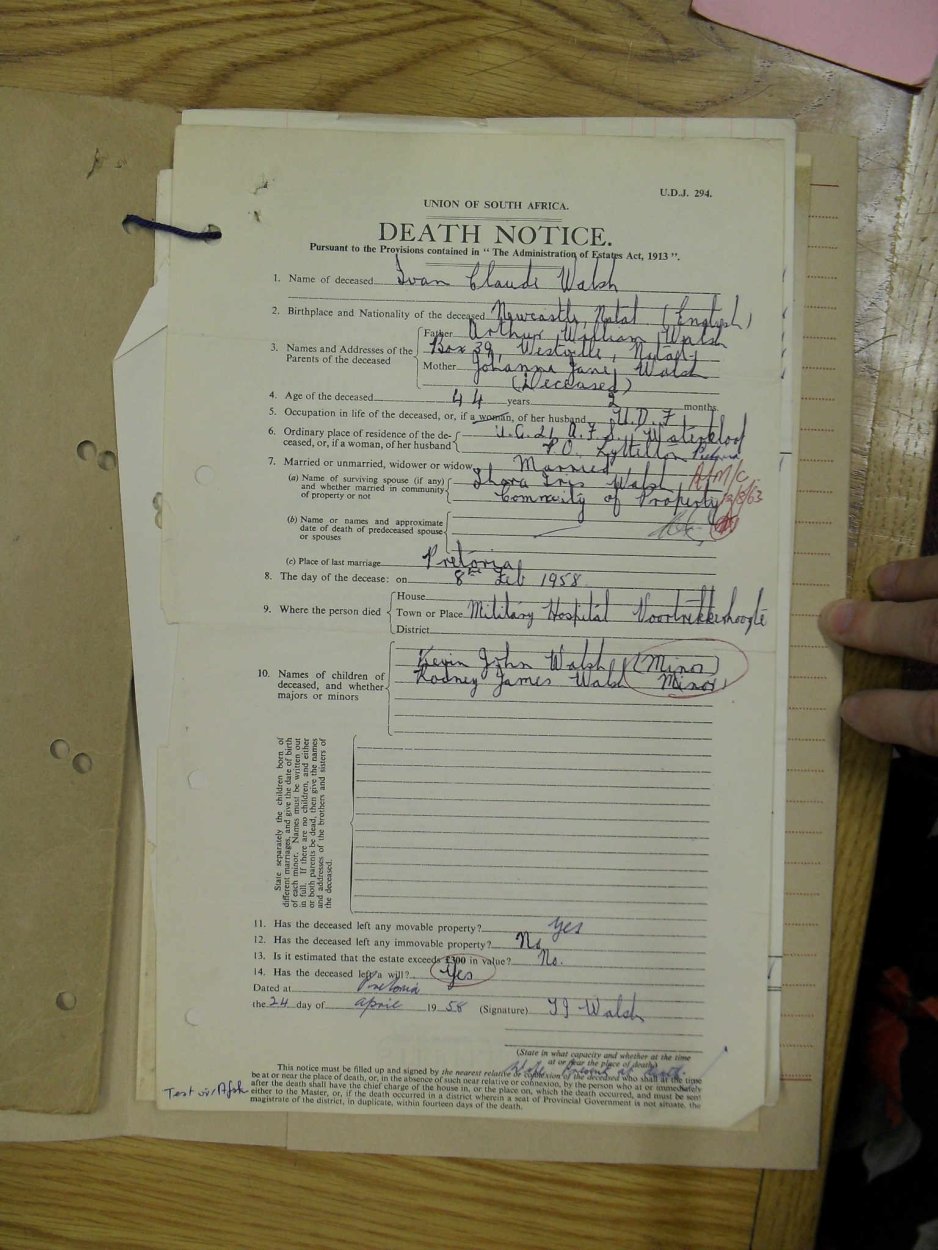 U.D.J. 294.
UNION OF SOUTH AFRICA.
DEATH NOTICE.
Pursuant to the Provisions contained in "The Administration of Estates Act, 1913".
1. Name of deceased Ivan Claude Walsh
2. Birthplace and Nationality of the deceased Newcastle, Natal (English)
3. Names and Addresses of the Parents of the deceased
Father Arthur William Walsh
Box 39, Westville, Natal
Mother Johanna Jane Walsh
(Deceased)
4. Age of the deceased 44 years 2 months.
5. Occupation in life of the deceased, or, if a woman, of her husband U.D.F.
6. Ordinary place of residence of the deceased, or, if a woman, of her husband
Waterkloof
P.O. Lyttelton Pretoria
7. Married or unmarried, widower or widow Married
(a) Name of surviving spouse (if any) and whether married in community of property or not
Iris Walsh
Community of Property
13/8/63
(b) Name or names and approximate date of death of predeceased spouse or spouses
(c) Place of last marriage Pretoria
8. The day of the decease: on 8th Feb 1958
9. Where the person died
House
Town or Place Military Hospital Voortrekkerhoogte
District
10. Names of children of deceased, and whether majors or minors
Kevin John Walsh (Minor)
Rodney James Walsh Minor
State separately the children born of different marriages, and give the date of birth of each minor. Names must be written out in full. If there are no children, and either or both parents be dead, then give the names and addresses of the brothers and sisters of the deceased.
11. Has the deceased left any movable property? Yes
12. Has the deceased left any immovable property? No
13. Is it estimated that the estate exceeds £300 in value? No.
14. Has the deceased left a will? Yes
Dated at Pretoria
the 24 day of April 19 58 (Signature) Walsh
(State in what capacity and whether at the time at or near the place of death)
This notice must be filled up and signed by the nearest relative or connexion of the deceased who shall at the time
be at or near the place of death, or, in the absence of such near relative or connexion, by the person who at or immediately
after the death shall have the chief charge of the house in, or the place on, which the death occurred, and must be sent
either to the Master, or, if the death occurred in a district wherein a seat of Provincial Government is not situate, the
magistrate of the district, in duplicate, within fourteen days of the death.